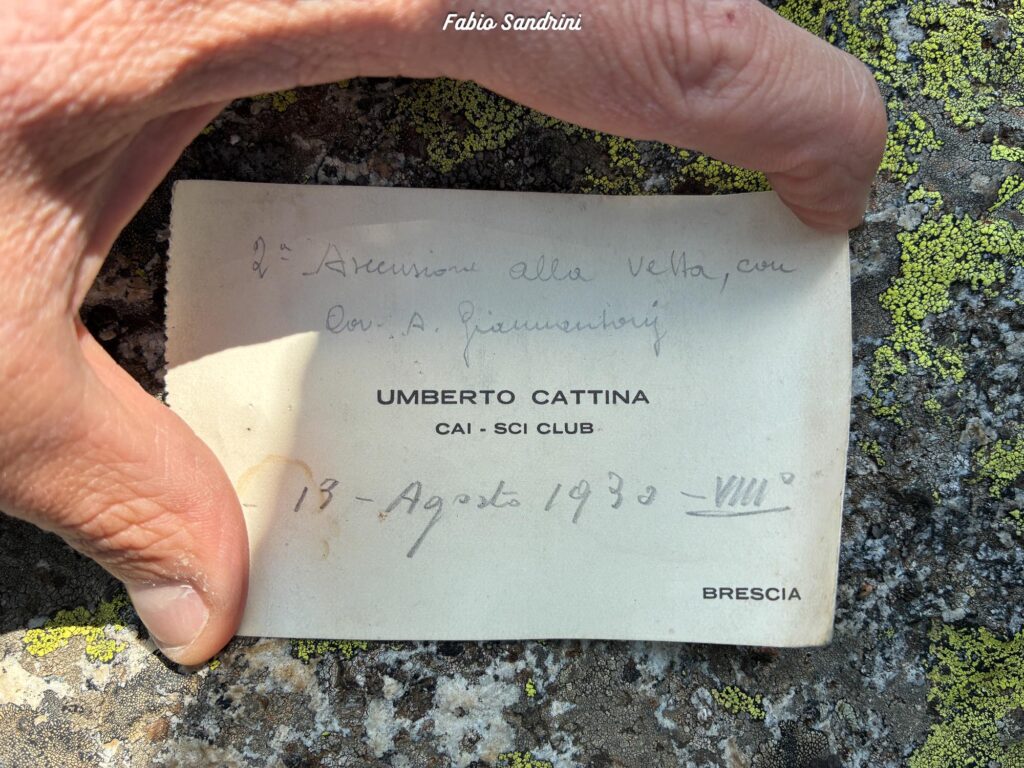 Fabio Sandrini
2ª Ascensione alla vetta, con
A.
UMBERTO CATTINA
CAI - SCI CLUB
- 13 - Agosto 1930 - VIII°
BRESCIA